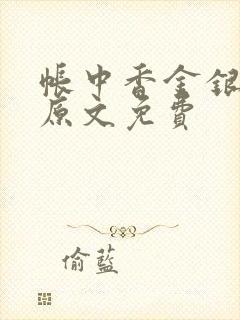 帳中香金銀
原文免費
偷藍